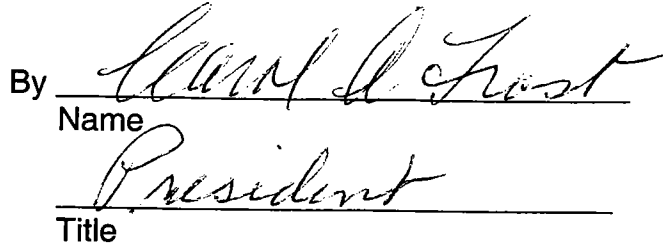 By Carol A Frost
Name
President
Title